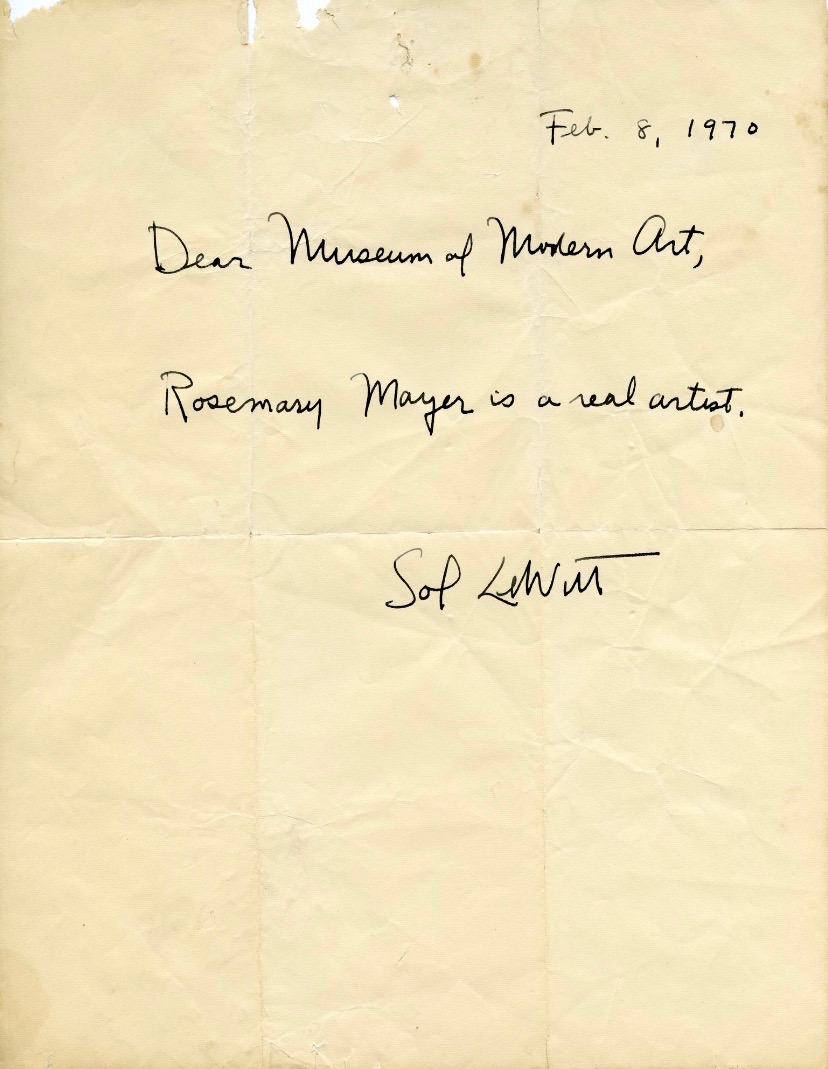 Feb. 8, 1970
Dear Museum of Modern Art,
Rosemary Mayer is a real artist.
Sol LeWitt